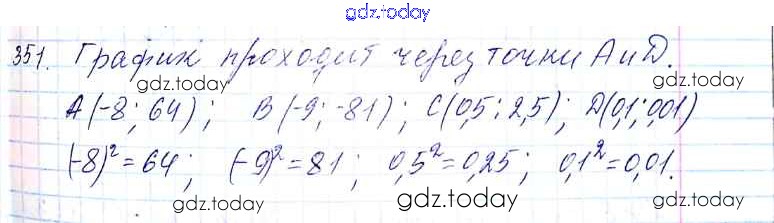 gdz.today
351. График проходит через точки А и D.
gdz.today gdz.today
A(-8; 64); B(-9; -81); C(0,5; 2,5); D(0,1; 0,01)
(-8)²=64; (-9)²=81; 0,5²=0,25; 0,1²=0,01.
gdz.today gdz.today gdz.today